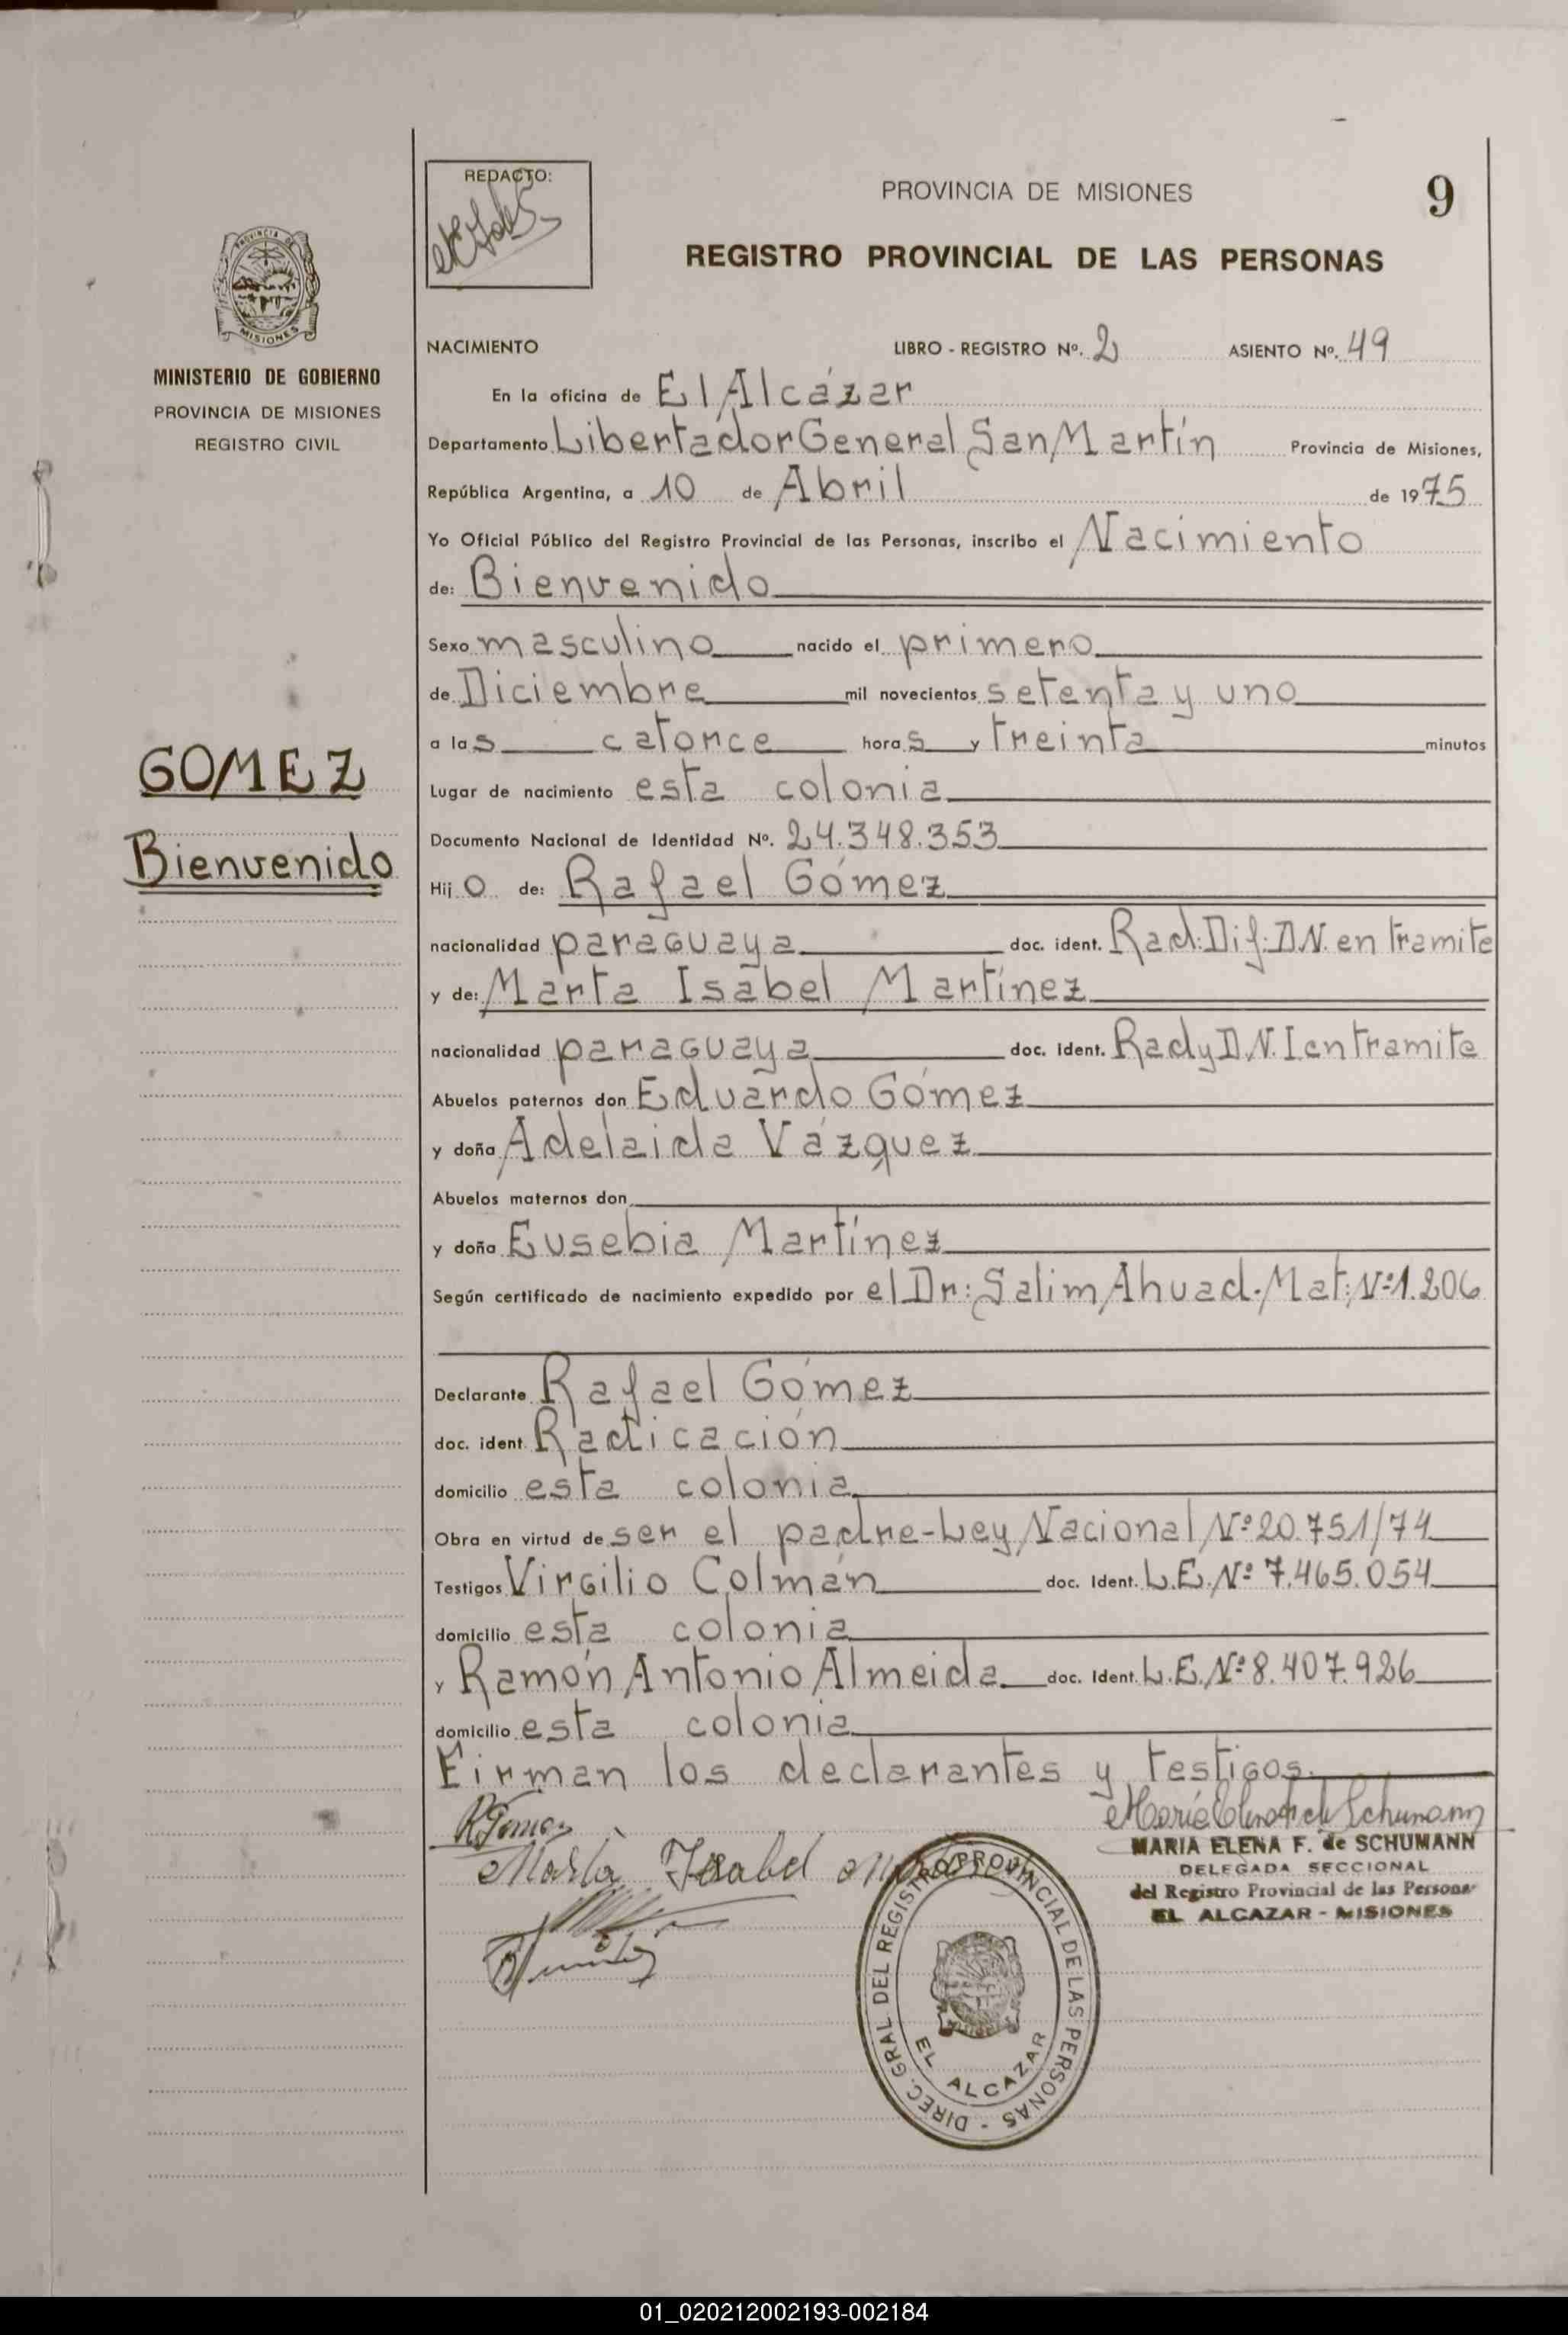 REDACTO:
PROVINCIA DE MISIONES
9
REGISTRO PROVINCIAL DE LAS PERSONAS
PROVINCIA DE
MISIONES
MINISTERIO DE GOBIERNO
PROVINCIA DE MISIONES
REGISTRO CIVIL
GOMEZ
Bienvenido
NACIMIENTO LIBRO - REGISTRO Nº. 2 ASIENTO Nº. 49
En la oficina de El Alcázar
Departamento Libertador General San Martín Provincia de Misiones,
República Argentina, a 10 de Abril de 1975
Yo Oficial Público del Registro Provincial de las Personas, inscribo el Nacimiento
de: Bienvenido
Sexo masculino nacido el primero
de Diciembre mil novecientos setenta y uno
a las catorce horas y treinta minutos
Lugar de nacimiento esta colonia
Documento Nacional de Identidad Nº. 24.348.353
Hijo de: Rafael Gómez
nacionalidad paraguaya doc. ident. Rad:Dif:D.N. en tramite
y de: Marta Isabel Martínez
nacionalidad paraguaya doc. ident. Rad y D.N.I en tramite
Abuelos paternos don Eduardo Gómez
y doña Adelaida Vázquez
Abuelos maternos don
y doña Eusebia Martínez
Según certificado de nacimiento expedido por el Dr: Salim Ahuad. Mat: Nº 1.206
Declarante Rafael Gómez
doc. ident. Radicación
domicilio esta colonia
Obra en virtud de ser el padre-Ley Nacional Nº 20.751/74
Testigos Virgilio Colmán doc. Ident. L.E. Nº 7.465.054
domicilio esta colonia
y Ramón Antonio Almeida doc. Ident. L.E. Nº 8.407.926
domicilio esta colonia
Firman los declarantes y testigos.
R Gomez
Marta Isabel
MARIA ELENA F. de SCHUMANN
DELEGADA SECCIONAL
del Registro Provincial de las Personas
EL ALCAZAR - MISIONES
DIREC. GRAL DEL REGISTRO PROVINCIAL DE LAS PERSONAS -
EL ALCAZAR
01_020212002193-002184